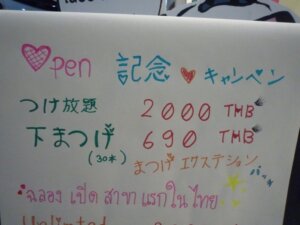 Open 記念 キャンペン
つけ放題 2000 TMB
下まつげ 690 TMB
(30本) まつげ エクステション
"ฉลอง เปิด สาขา แรก ใน ไทย
Unlimited